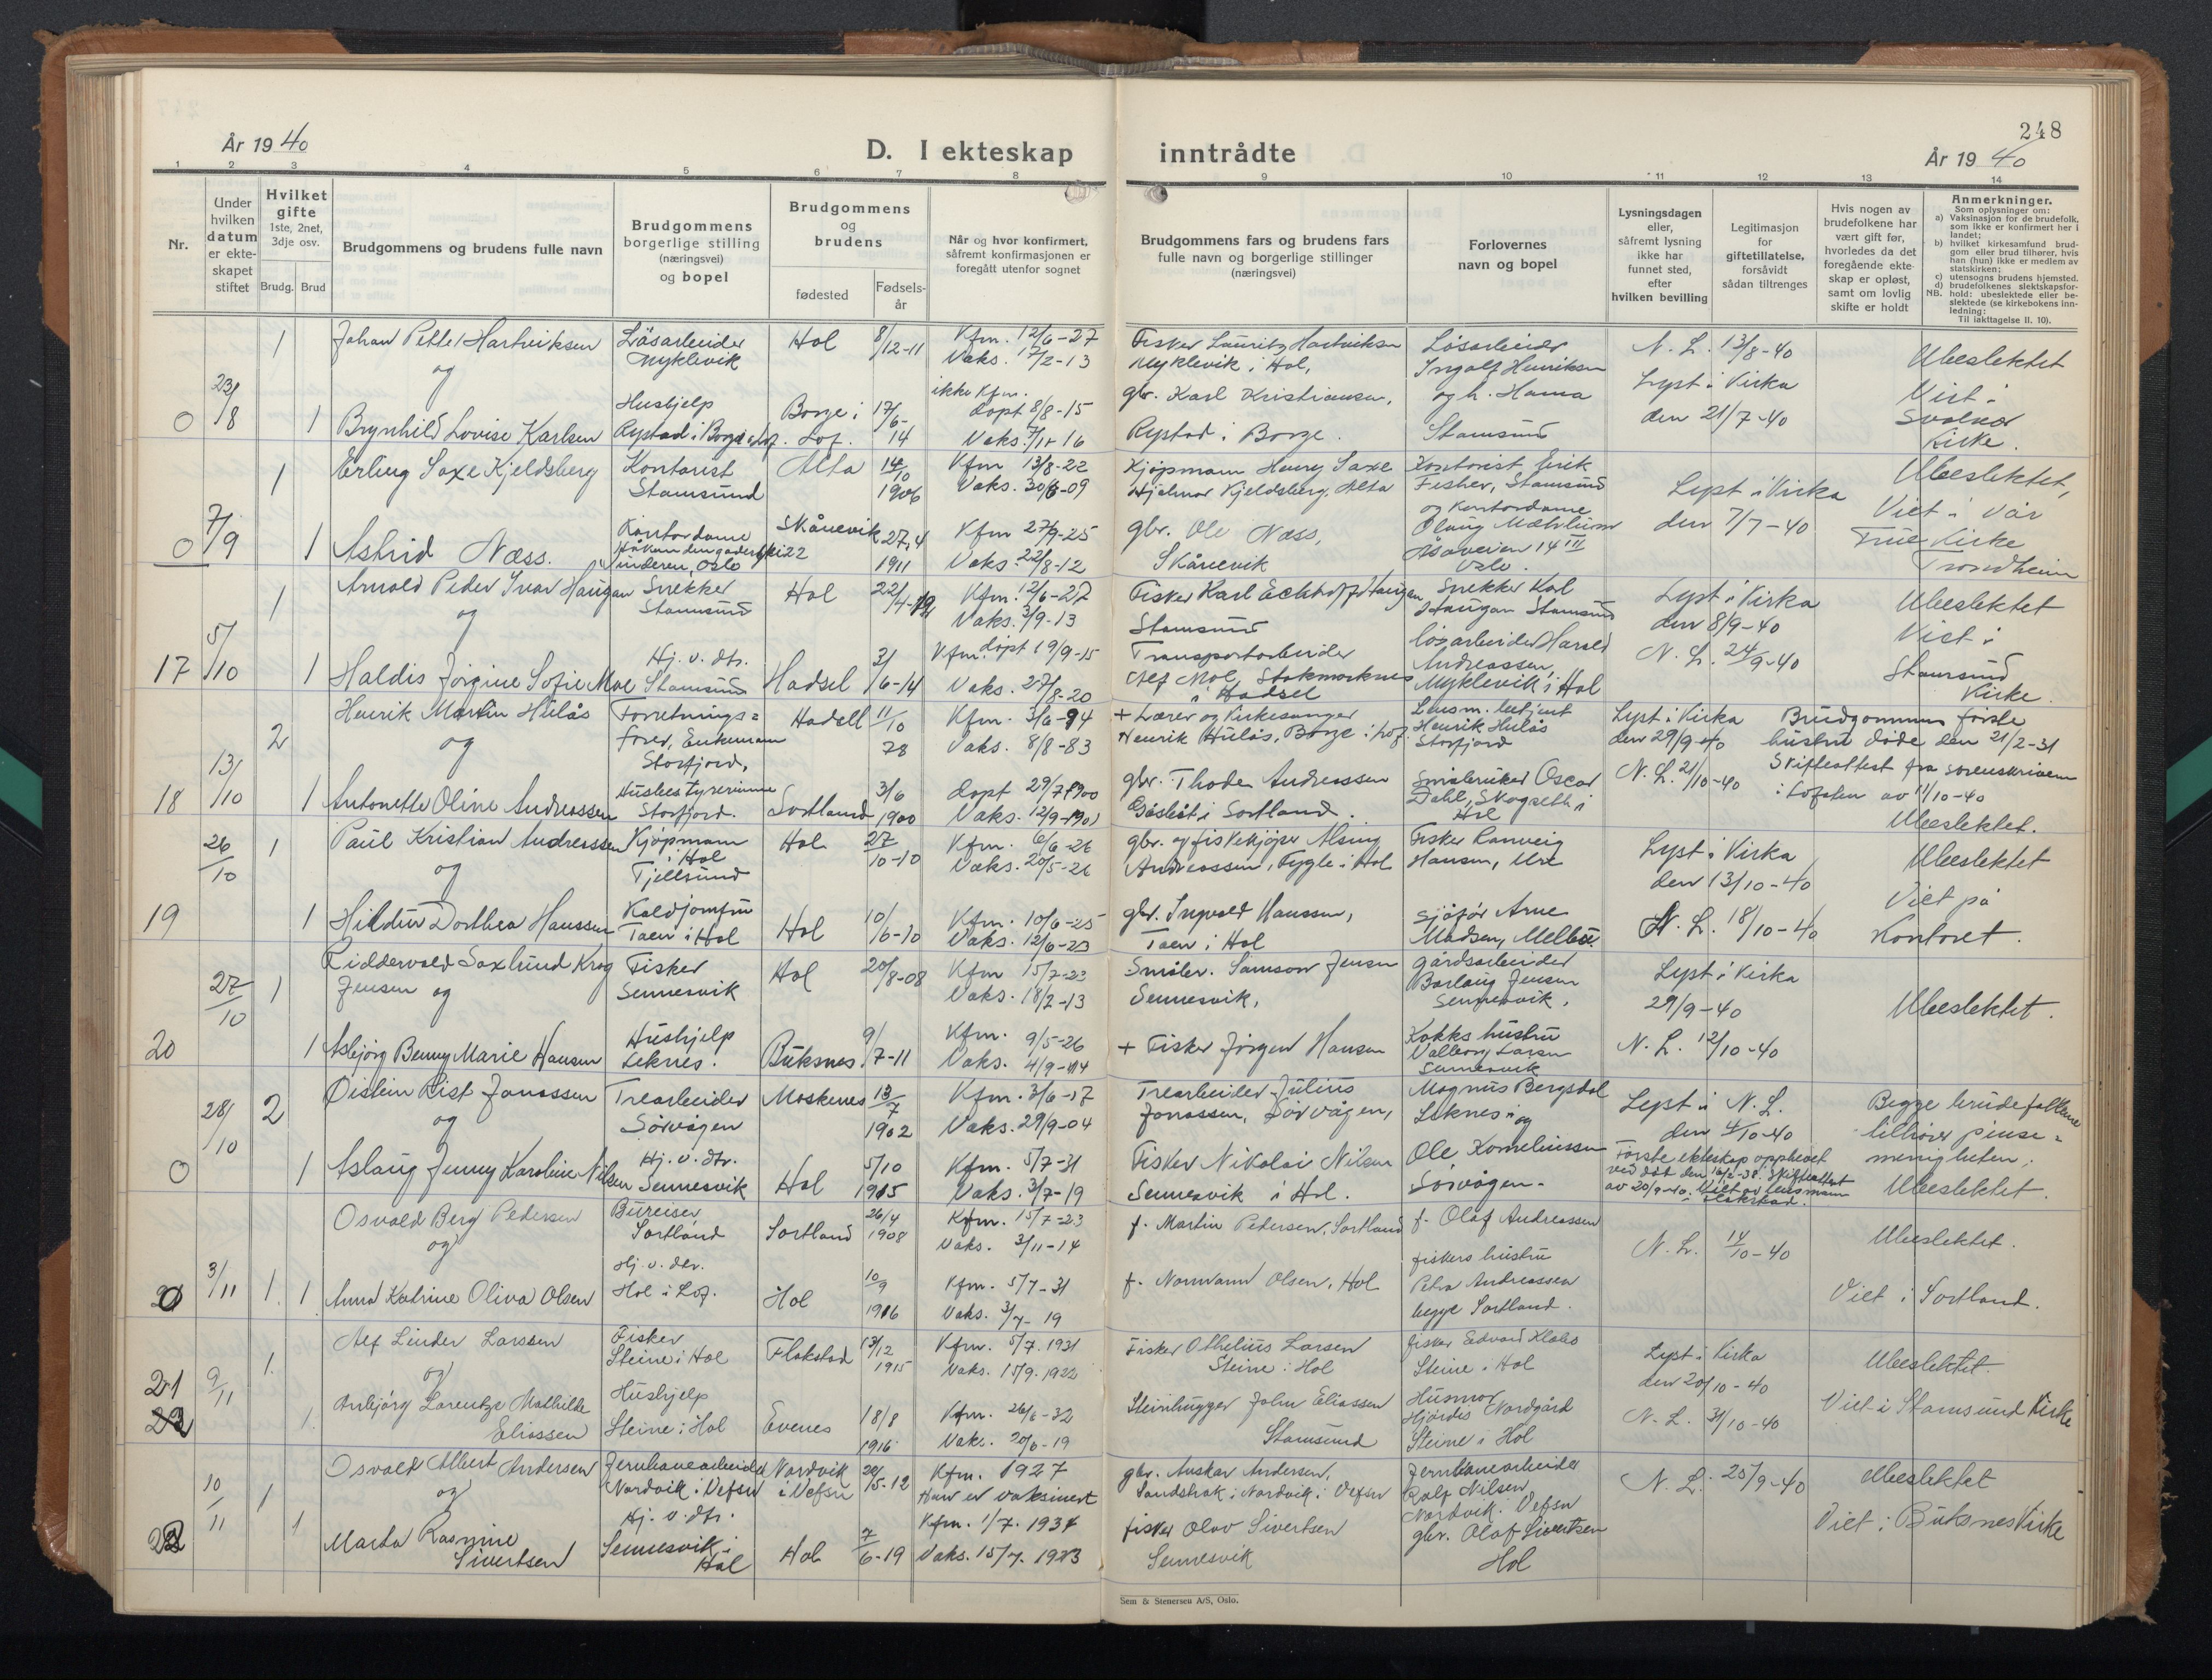 248
År 1940
D. I ekteskap inntrådte
År 1940
1 2 3 4 5 6 7 8 9 10 11 12 13 14
Nr.
Under hvilken datum er ekteskapet stiftet
Hvilket gifte 1ste, 2net, 3dje osv.
Brudg. Brud
Brudgommens og brudens fulle navn
Brudgommens borgerlige stilling (næringsvei) og bopel
Brudgommens og brudens
fødested
Fødsels-år
Når og hvor konfirmert, såfremt konfirmasjonen er foregått utenfor sognet
Brudgommens fars og brudens fars fulle navn og borgerlige stillinger (næringsvei)
Forlovernes navn og bopel
Lysningsdagen eller, såfremt lysning ikke har funnet sted, efter hvilken bevilling
Legitimasjon for giftetillatelse, forsåvidt sådan tiltrenges
Hvis nogen av brudefolkene har vært gift før, hvorledes da det foregående ekteskap er opløst, samt om lovlig skifte er holdt
Anmerkninger.
Som oplysninger om:
a) Vaksinasjon for de brudefolk, som ikke er konfirmert her i landet;
b) hvilket kirkesamfund brudgom eller brud tilhører, hvis han (hun) ikke er medlem av statskirken;
c) utensogns brudens hjemsted.
d) brudefolkenes slektskapsforhold: ubeslektede eller beslektede (se kirkebokens innledning:
NB.
Til iakttagelse II. 10).
1 Johan Petter Hartviksen Løsarbeider Hol 8/12-11 Kfm. 12/6-27 Fisker Lauritz Hartviksen Løsarbeider N. L. 13/8-40 Ubeslektet
og Myklevik Vaks. 17/2-13 Myklevik i Hol, Ingolf Henriksen Lyst i Kirka Viet i
23/8 Hushjelp Borge i 17/6-14 ikke Kfm. døpt 8/8-15 gbr. Karl Kristiansen, og h. Hanna den 21/7-40 Svolvær
0 1 Brynhild Lovise Karlsen Rystad i Borge i Lof. Lof. Vaks. 7/11-16 Rystad i Borge. Stamsund Kirke.
1 Erling Saxe Kjeldsberg Kontorist Alta 14/10 1906 Kfm 13/8-22 Kjøpmann Henry Saxe Kontorist Erik Ubeslektet,
Stamsund Vaks. 30/6-09 Hjelmar Kjeldsberg, Alta Fisher, Stamsund Lyst i Kirka Viet i Vår
0 7/9 1 Astrid Næss. Kontordame Skånevik 27,4 1911 Kfm 27/9-25 gbr. Ole Næss, og Kontordame den 7/7-40 Frue Kirke
Håkon den godes vei 22 Vinderen, Oslo Vaks. 22/8-12 Skånevik Åsaveien 14 III Oslo. Trondheim
1 Arnold Peder Ivar Haugan Snekker Hol 22/4- Kfm. 12/6-27 Fisker Karl Haugan Snekker Kal Lyst i Kirka Ubeslektet
og Stamsund Vaks. 3/9-13 Stamsund Haugan Stamsund den 8/9-40 Viet i
5/10 Hj. v. dtr. 3/6-14 Kfm. døpt 19/9-15 Transportarbeider løsarbeider Harald N. L. 24/9-40 Stamsund
17 1 Haldis Jørgine Sofie Moe Stamsund Hadsel Vaks. 27/8-20 Alf Moe, Stokmarknes i Hadsel Andreassen, Myklevik i Hol Kirke.
2 Henrik Martin Hulås Forretnings= Hadsel 11/10 78 Kfm. 3/6-94 + Lærer og Kirkesanger Lensm. betjent Lyst i Kirka Brudgommens første
og fører, Enkemann Storfjord, Vaks. 8/8-83 Henrik Hulås, Borge i Lof. Henrik Hulås Storfjord den 29/9-40 hustru døde den 21/2-31
13/10 Husbestyrerinne 3/6 1900 Døpt 29/7-1900 gbr. Thode Andreassen Småbruker Oscar N. L. 21/10-40 Skifteattest fra sorenskriveren
18 1 Antonette Oline Andreassen Storfjord. Sortland Vaks. 12/9-1901 i Sortland. Dahl, Skogseth i Hol i Lofoten av 11/10-40
Ubeslektet.
26/10 1 Paul Kristian Andreassen Kjøpmann i Hol Hol 27/10-10 Kfm. 6/6-26 gbr. og fiskekjøper Alsing Fisker Ranveig Lyst i Kirka Ubeslektet
og Tjeldsund Vaks. 20/5-26 Andreassen, Hygle i Hol Hansen, Ure den 13/10-40 Viet på
19 1 Hildur Dorthea Hanssen Koldjomfru Taen i Hol Hol 10/6-10 Kfm. 10/6-25 gbr. Ingvald Hanssen, Sjåfør Arne N. L. 18/10-40 Kontoret.
Vaks. 12/6-23 Taen i Hol Madsen, Melbu
27/10 1 Riddervold Saxlund Krog Fisker Hol 20/8-08 Kfm 15/7-23 Småbr. Samson Jensen gårdsarbeider Lyst i Kirka
Jensen og Sennesvik Vaks. 18/2-13 Sennesvik, Barlaug Jensen Sennesvik, 29/9-40 Ubeslektet.
20 1 Asbjørg Benny Marie Hansen Hushjelp Leknes. Buksnes 9/7-11 Kfm. 9/5-26 + Fisker Jørgen Hansen Kokks hustru N. L. 12/10-40
Vaks. 4/9-14 Valborg Larsen Sennesvik
28/10 2 Øistein Rist Jonassen Trearbeider Moskenes 13/7 1902 Kfm. 3/6-17 Trearbeider Julius Magnus Bergsdal Lyst i N. L. Begge brudefolkene
og Sørvågen Vaks. 29/9-04 Jonassen, Sørvågen, Leknes og den 4/10-40 tilhører pinse=
0 1 Aslaug Jenny Karoline Nilsen Hj. v. dtr. Hol 5/10 1915 Kfm. 5/7-31 Fisker Nikolai Nilsen Ole Korneliussen Første ekteskap opphevet menigheten.
Sennesvik Vaks. 3/7-19 Sennesvik i Hol. Sørvågen. ved død den 16/2-38. Skifteattest av 20/9-40. Viet av lensmann i Flakstad. Ubeslektet.
Osvald Berg Pedersen Bureiser Sortland 26/4 1908 Kfm. 15/7-23 f. Martin Pedersen, Sortland f. Olaf Andreassen Ubeslektet.
og Sortland Vaks. 3/11-14 fiskers hustru N. L. 14/10-40
20 3/11 1. 1 Anna Katrine Oliva Olsen Hj. v. der. Hol i Lof. Hol 10/9 1916 Kfm. 5/7-31 f. Normann Olsen, Hol Petra Andreassen Viet i Sortland.
Vaks. 3/7-19 begge Sortland.
21 9/11 1. Alf Linder Larssen Fisker Flakstad 13/12 1915 Kfm. 5/7. 1931 Fisker Othelius Larsen fisker Edvard Klabo Lyst i Kirka Ubeslektet.
og Steine i Hol Vaks. 15/9. 1922 Steine i Hol Steine i Hol den 20/10-40
1. Anbjørg Lorentze Mathilde Hushjelp Evenes 18/8 1916 Kfm. 26/6-32 Steinhugger John Eliassen Husmor Hjørdis Nordgård N. L. 31/10-40 Viet i Stamsund Kirke
Eliassen Steine i Hol Vaks. 20/6-19 Stamsund Steine i Hol
10/11 1 Osvald Albert Andersen Jernbanearbeider Nordvik 20/5-12 Kfm. 1927 gbr. Anskar Andersen, Jernbanearbeider N. L. 25/9-40 Ubeslektet
og Nordvik i Vefsn i Vefsn Han er vaksinert Sandstrak i Nordvik i Vefsn Rolf Nilsen Nordvik Vefsn
22 1 Marta Rasmine Hj. v. dtr. Hol 7/6-19 Kfm. 1/7. 1934 fisker Olav Sivertsen gbr. Olaf Sivertsen Viet i Buksnes Kirke
Sivertsen Sennesvik i Hol Vaks. 15/7. 1923 Sennesvik Hol
Sem & Stenersen A/S, Oslo.